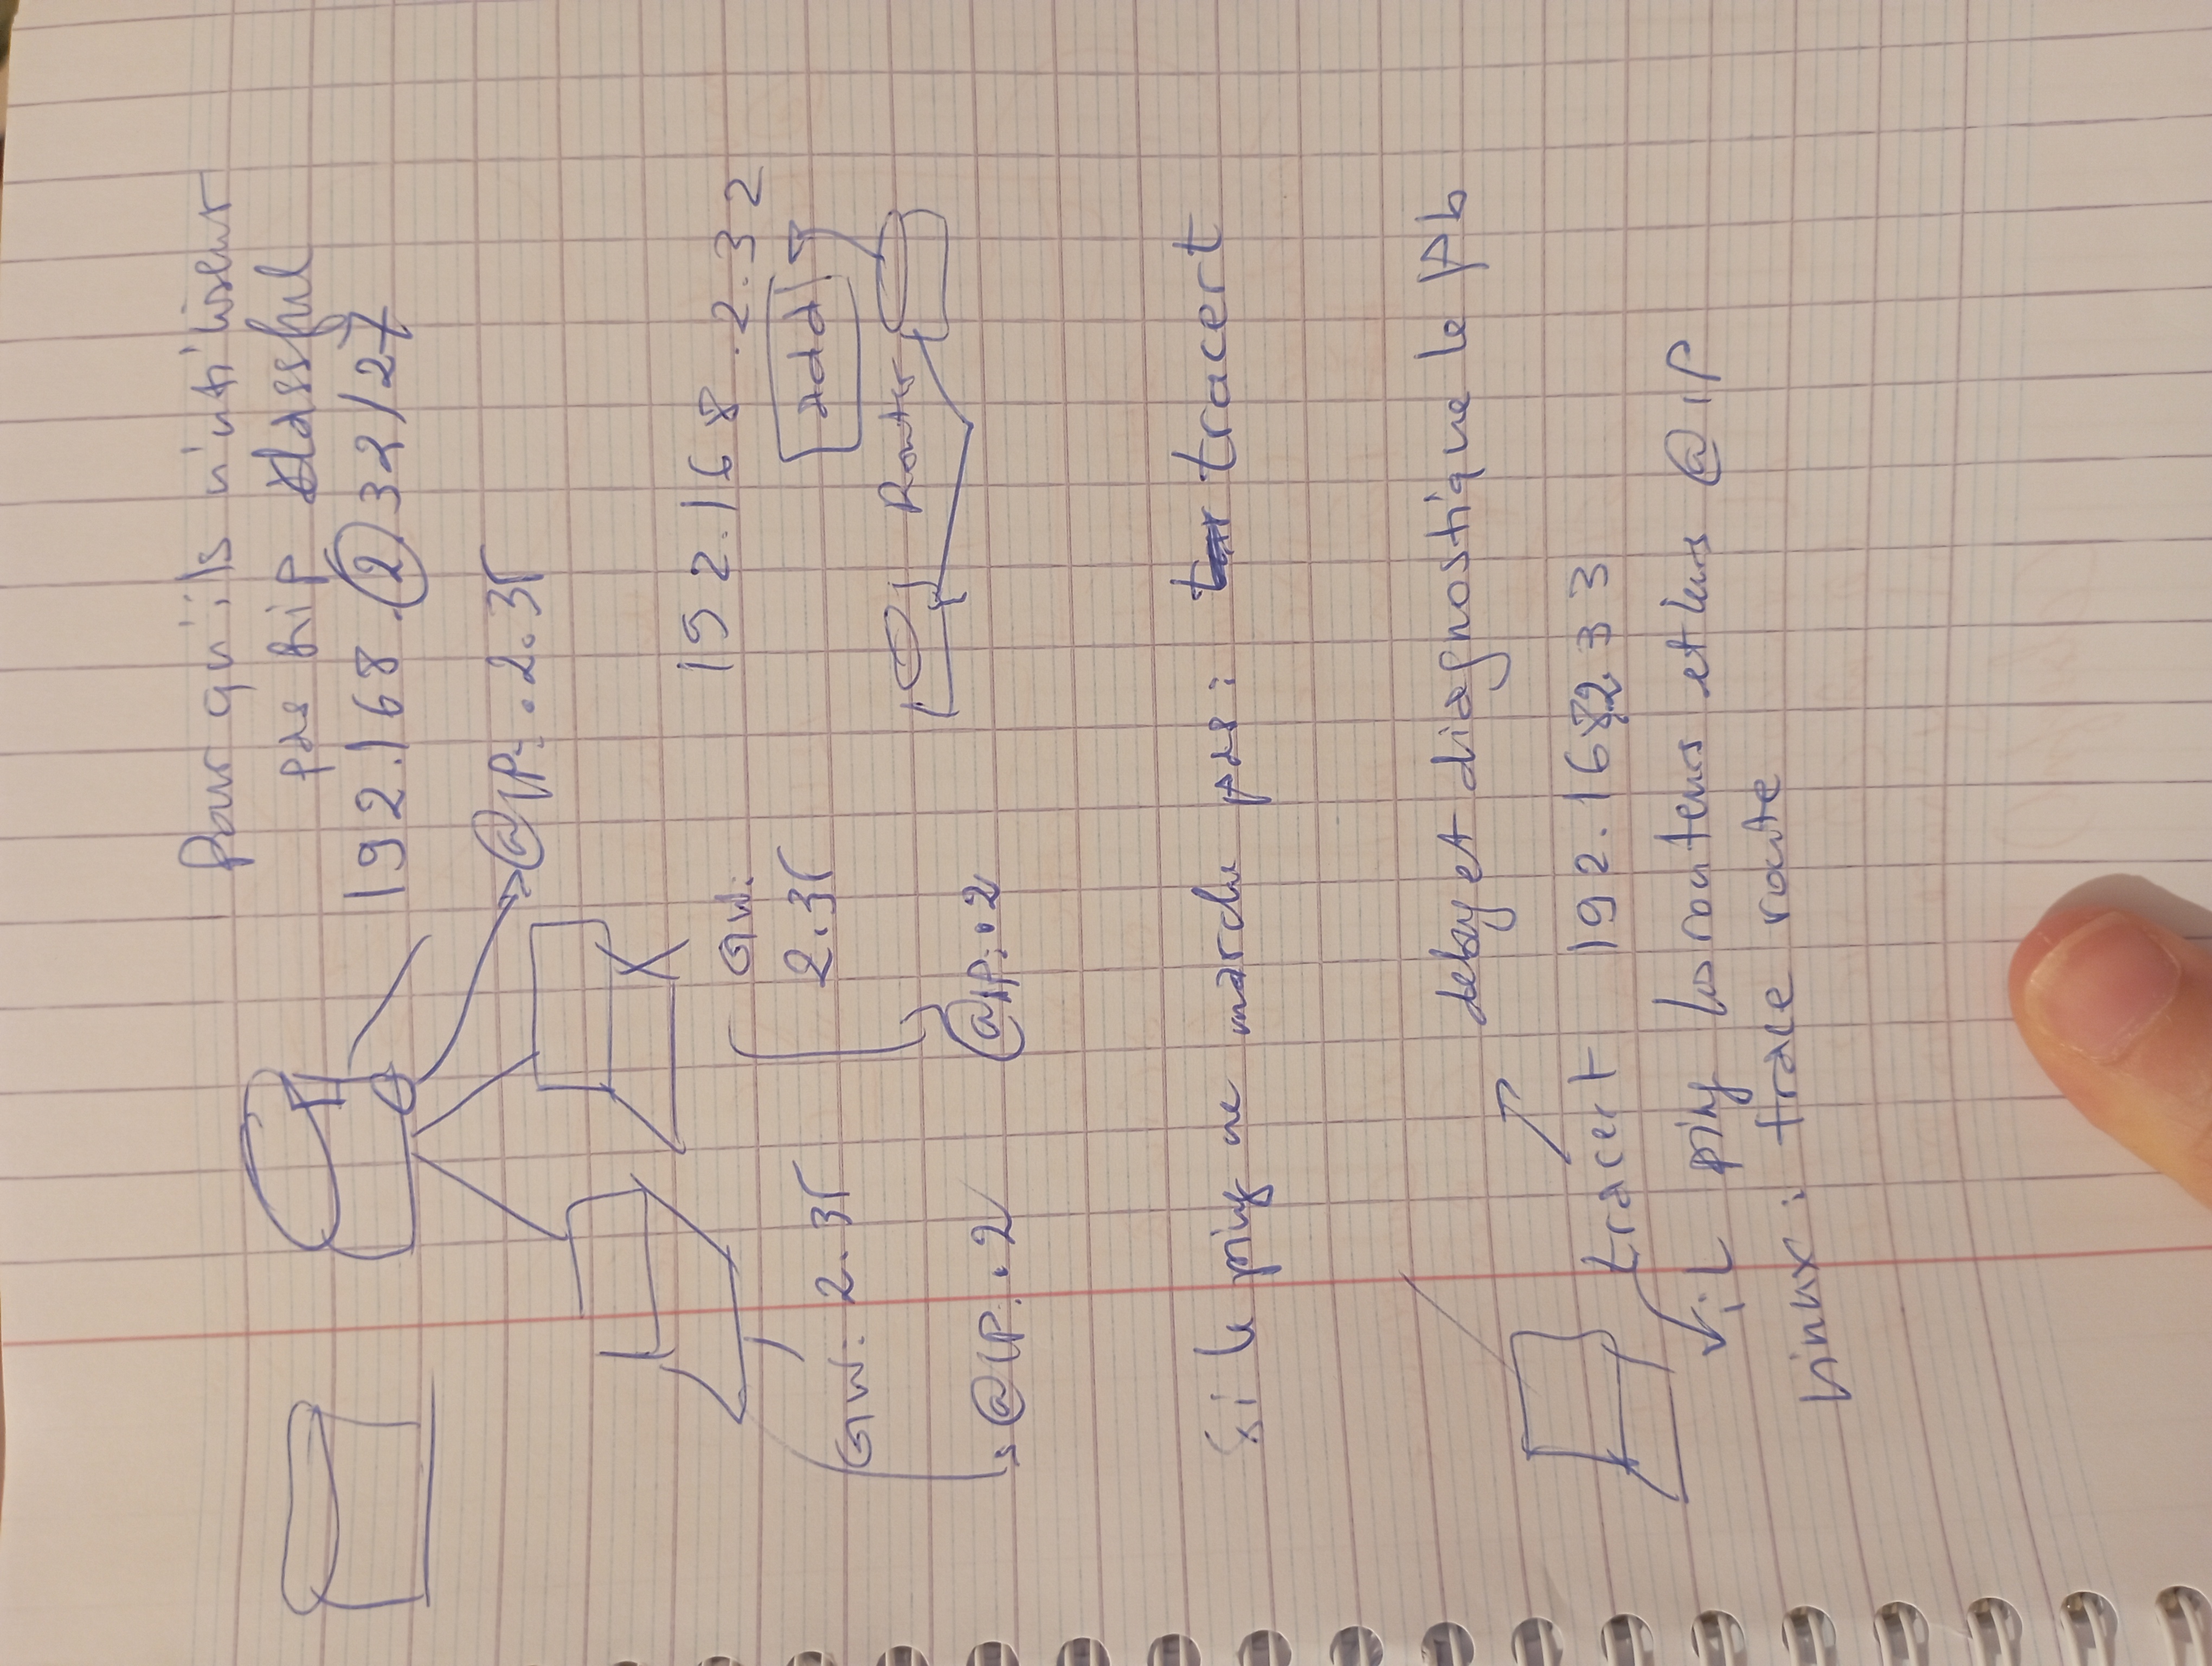 Pour qu'ils n'utilisent
pas Rip classful
192.168.2.32/27
@IP: .2.35
GW:
2.35
192.168.2.32
add
GW: 2.35
Router
@IP: .2
@IP: .2
Si le ping ne marche pas: tracert
debug et diagnostique le Pb
tracert 192.168.2.33
il ping les routeurs et leurs @ip
Linux: trace route